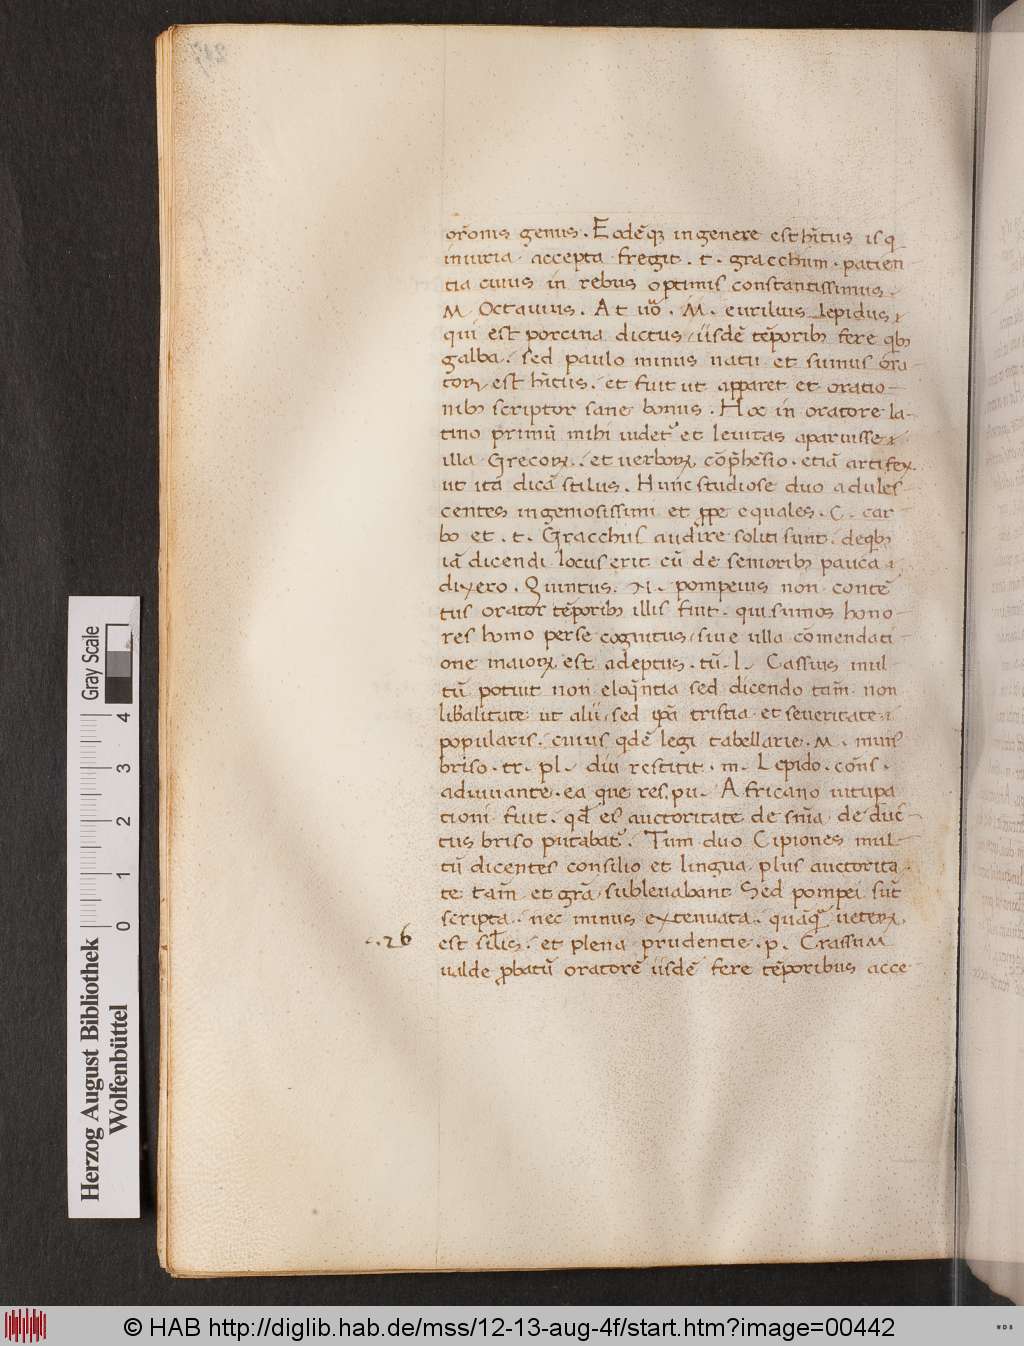 or̃onis genus. Eodẽqꝫ in genere est hĩtus is q̣
iniuria accepta fregit. t. gracchum. patien
tia cuius in rebus optimis constantissimus.
M Octauius. At uo᷑. M. euriluis lepidus
qui est porcina dictus, iisdẽ tẽporibꝫ fere qbꝫ
galba. sed paulo minus natu et sumus ora
torꝝ est hĩtus. et fuit ut apparet et oratio-
nibꝫ scriptor sane bonus. Hoc in oratore la-
tino primũ mihi uidet᷑ et leuitas aparuisse
illa Grecorꝝ. et uerborꝝ cõp̃hẽsio. etiã artifex.
ut ita dicã stilus. Hunc studiose duo adules-
centes ingeniosissimi et ꝓpe equales. C. car
bo et. t. Gracchus audire soliti sunt. de qbꝫ
iã dicendi locus erit cũ de senioribꝫ pauca
dixero. Quintus. N. pompeius non contẽ
tus orator tẽporibꝫ illis fuit. qui sumos hono-
res homo per se cognitus, siue ulla cõmendati
one maiorꝝ est adeptus. tũ. l. Cassius mul-
tũ potuit non eloq̃ntia sed dicendo tam̃ non
libalitate ut alii, sed ip̃a tristia et seueritate
popularis. cuius qdẽ legi tabellarie. M. mũs
briso. tr. pl. diu restitit. m. Lepido. cõns.
adiuuante. ea que res. pu. Africano uitupa
tioni fuit. qđ eĩ auctoritate de sñia de duc-
tus briso putabat᷑. Tum duo Cipiones mul-
tũ dicentes consilio et lingua, plus auctorita
te tam̃ et grã, subleuabant Sed pompei sũt
scripta. nec minus extenuata. quãq̃ ueterꝝ
est siĩlis. et plena prudentie. p. Crassum
ualde ꝓbatũ oratorẽ iisdẽ fere tẽporibus acce
26
Gray Scale
0 1 2 3 4
Herzog August Bibliothek
Wolfenbüttel
© HAB http://diglib.hab.de/mss/12-13-aug-4f/start.htm?image=00442